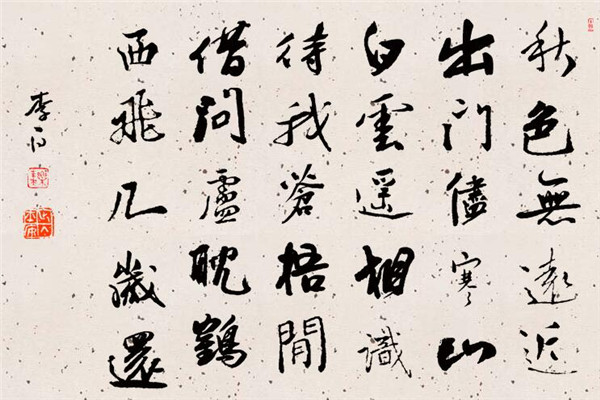 秋色無遠近
出門儘寒山
白雲遥相識
待我蒼梧閒
借問盧耽鶴
西飛几歲還
李白